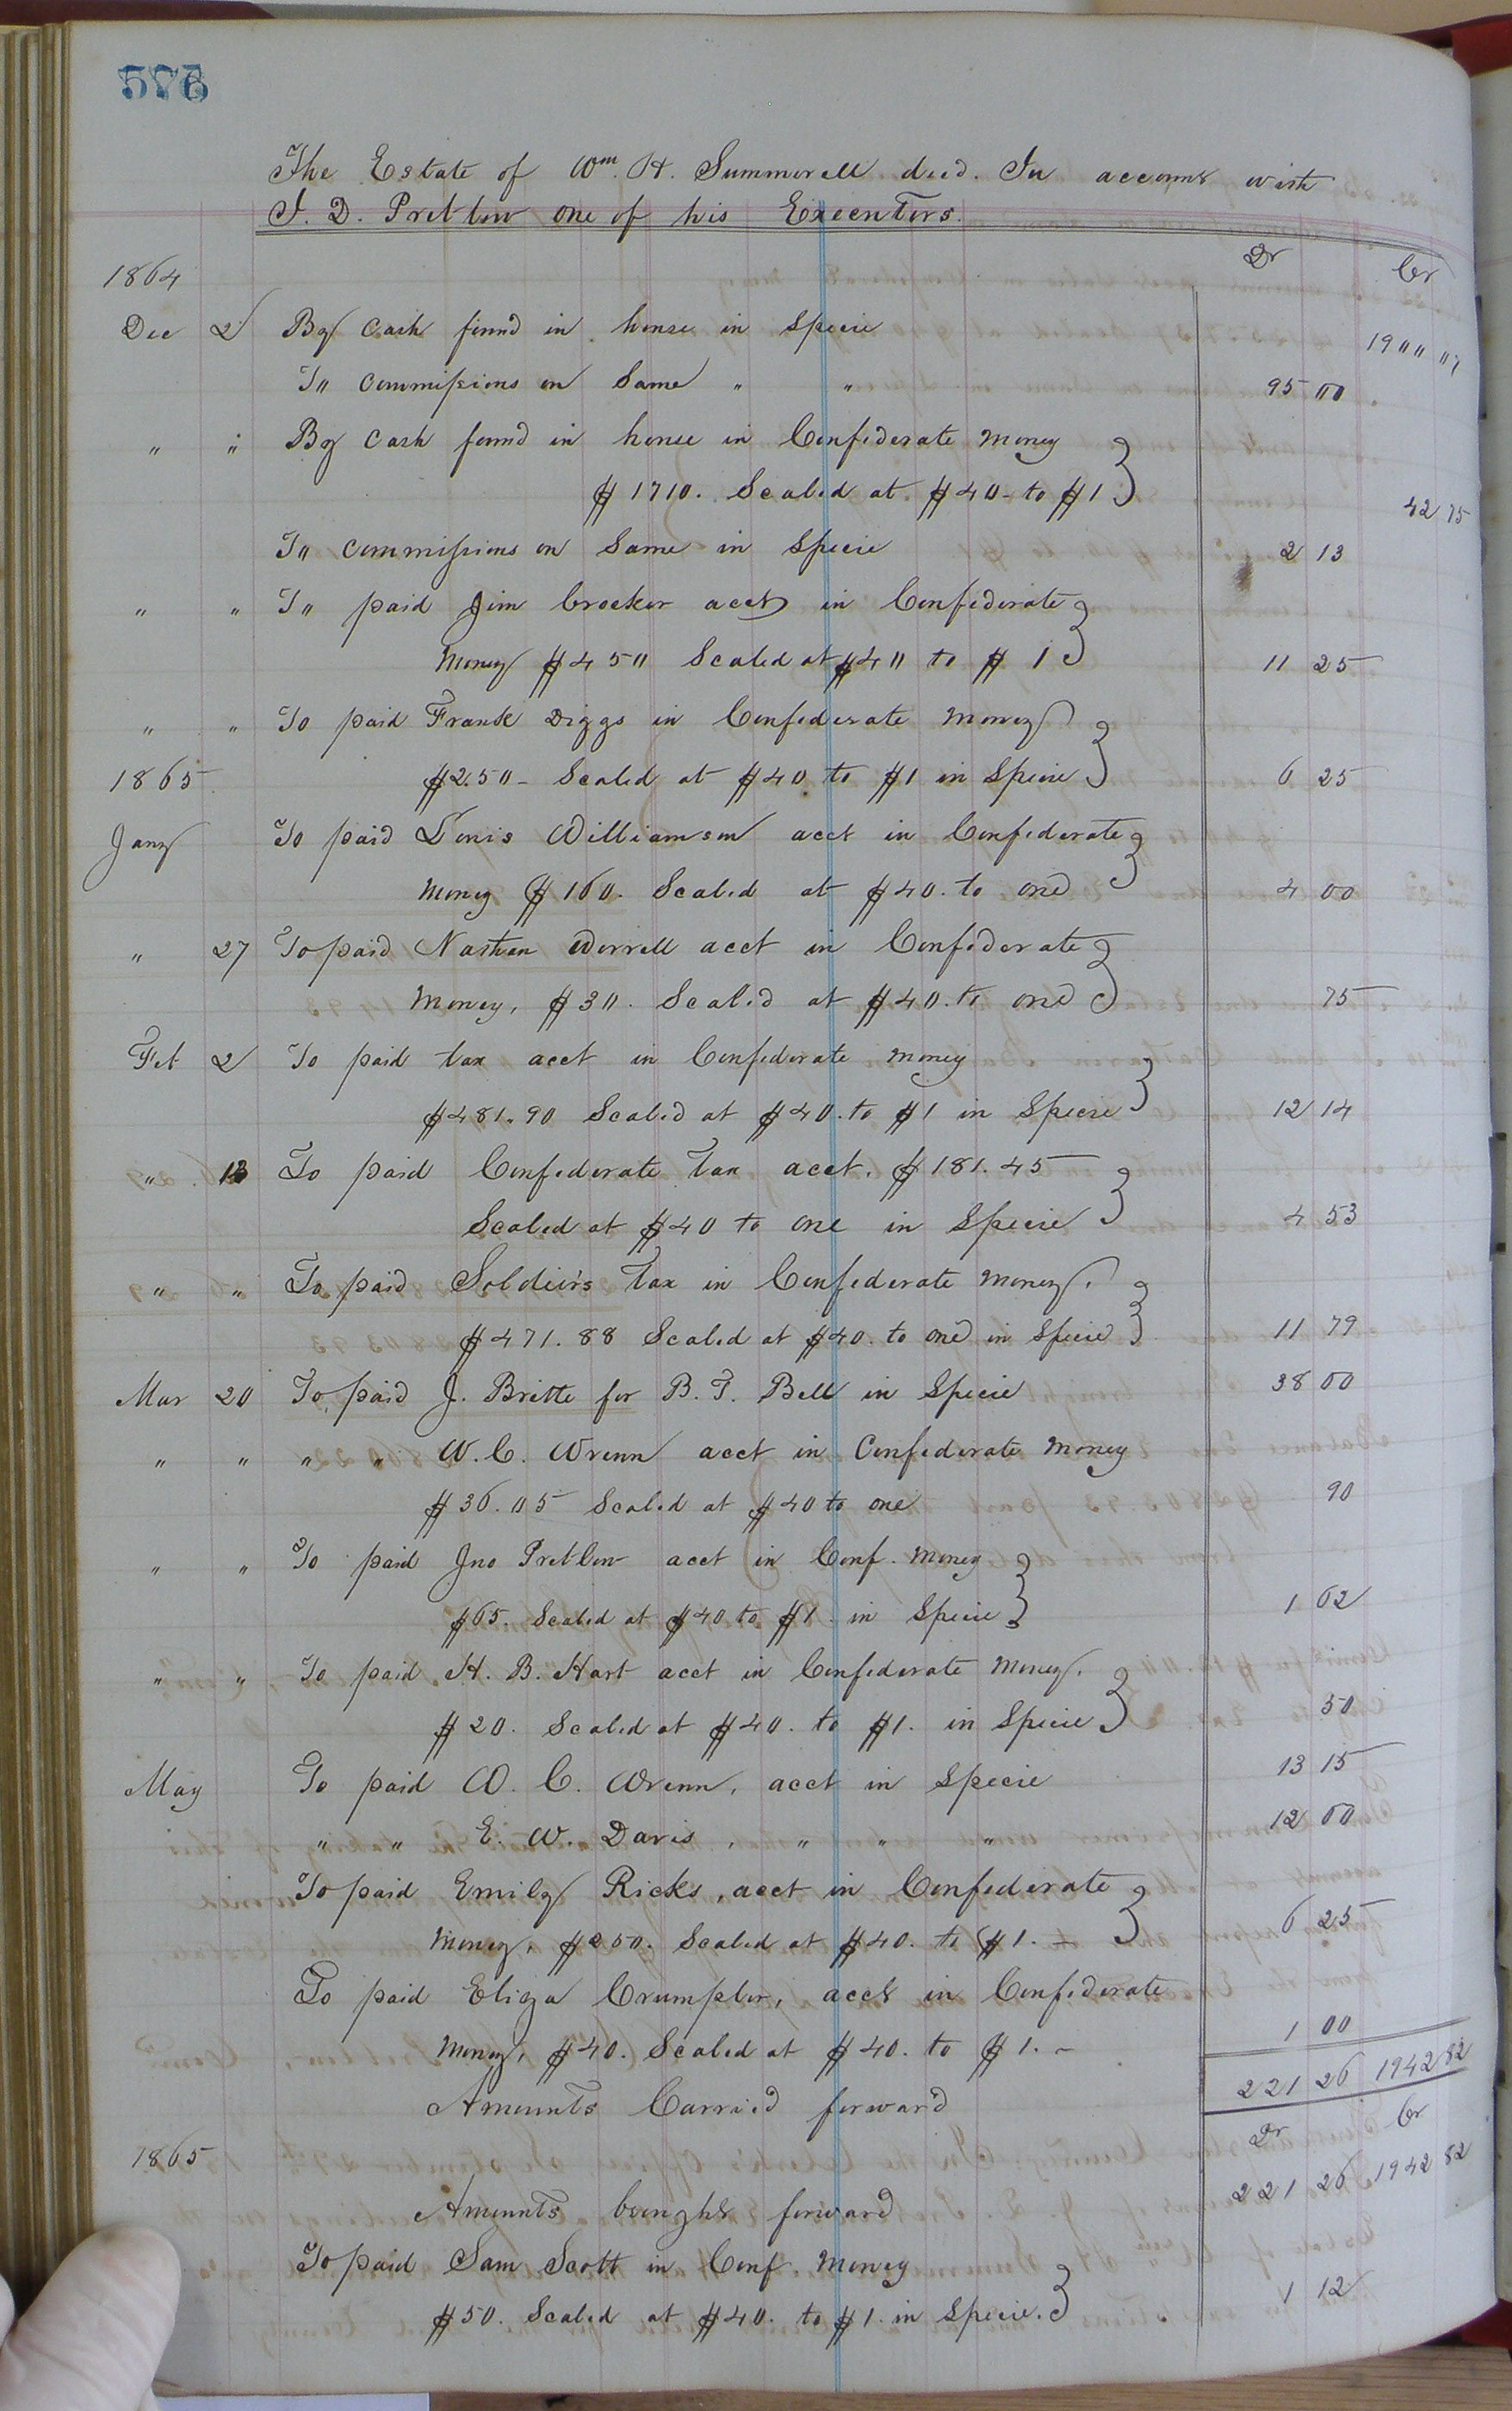 576
The Estate of Wm. H. Summerell decd. In account with
J. D. Pretlow one of his Executors.
Dr Cr
1864
Dec 2 By Cash found in house in Specie 19 00 00
To commissions on Same " " 95 00
" " By Cash found in house in Confederate Money
$1710. Scaled at $40 to $1 42 75
To commissions on Same in Specie 2 13
" " To paid Jim Crocker acct in Confederate
Money $450 Scaled at $40 to $1 11 25
" " To paid Frank Diggs in Confederate Money
1865 $250 - Scaled at $40 to $1 in Specie 6 25
Jany To paid Williamson acct in Confederate
Money $160. Scaled at $40. to one 4 00
" 27 To paid Nathan Worrell acct in Confederate
Money, $30. Scaled at $40. to one 75
Feb 2 To paid tax acct in Confederate Money
$481.90 Scaled at $40. to $1 in Specie 12 14
" 13 To paid Confederate Tax acct. $181.45
Scaled at $40 to one in Specie 4 53
" " To paid Soldiers Tax in Confederate Money.
$471.88 Scaled at $40. to one in Specie 11 79
Mar 20 To paid J. Britte for B. F. Bell in Specie 38 00
" " " " W. C. Wrenn acct in Confederate Money
$36.05 Scaled at $40 to one 90
" " To paid Jno Pretlow acct in Conf. Money
$65. Scaled at $40 to $1. in Specie 1 62
" " To paid H. B. Hart acct in Confederate Money.
$20. Scaled at $40. to $1. in Specie 50
May To paid W. C. Wrenn, acct in Specie 13 15
" " E. W. Davis, " " " 12 00
To paid Emily Ricks, acct in Confederate
Money, $250. Scaled at $40. to $1. - 6 25
To paid Eliza Crumpler, acct in Confederate
Money, $40. Scaled at $40. to $1. - 1 00
221 26 1942 82
Amounts Carried forward
Dr Cr
1865
221 26 1942 82
Amounts brought forward
To paid Sam Scott in Conf Money
$50. Scaled at $40. to $1. in Specie. 1 12